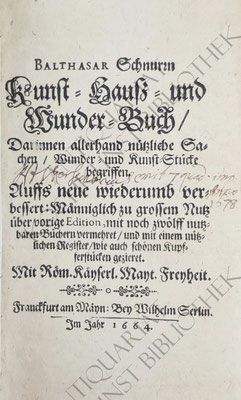 BALTHASAR Schnurrn
Kunst- Hauß- und
Wunder-Buch/
Darinnen allerhand nützliche Sa-
chen/ Wunder- und Kunst-Stücke
begriffen/
Auffs neue wiederumb ver-
bessert: Männiglich zu grossem Nutz
über vorige Edition, mit noch zwölff nutz-
baren Büchern vermehret/ und mit einem nütz-
lichen Register/ wie auch schönen Kupf-
ferstücken gezieret.
Mit Röm. Käyserl. Mayt. Freyheit.
Franckfurt am Mäyn: Bey Wilhelm Serlin.
Im Jahr 1664.